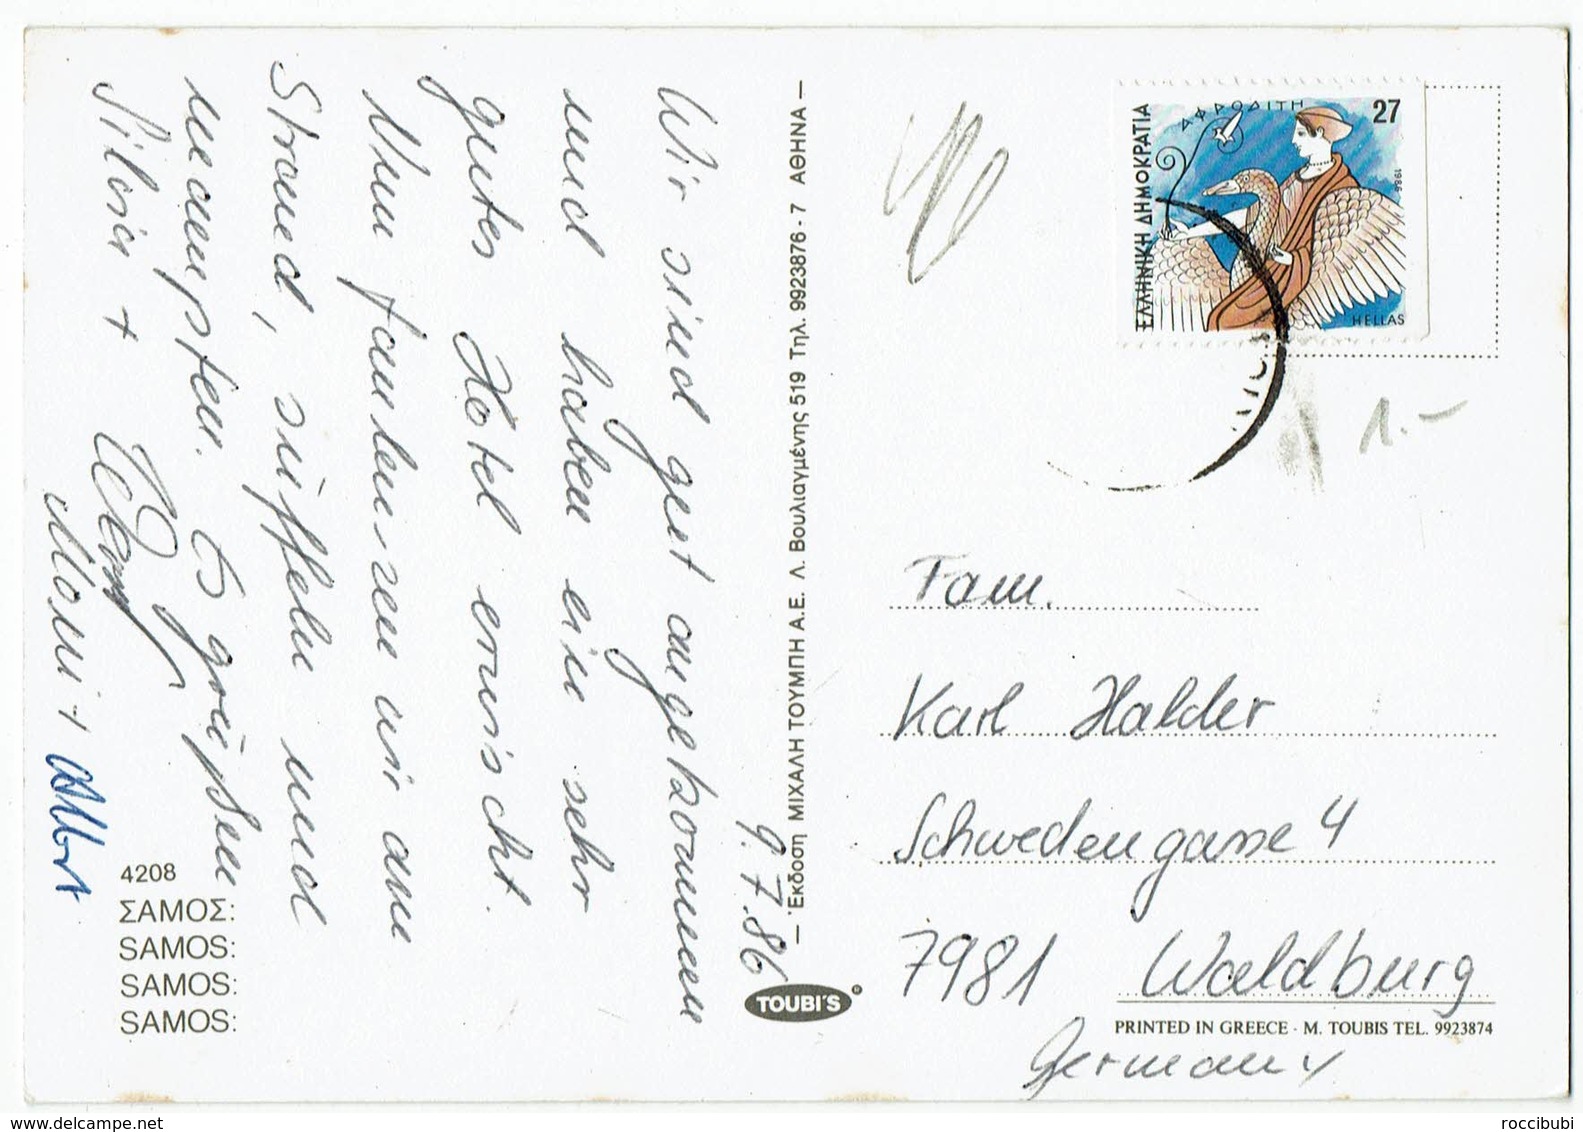 9.7.86
Wir sind gut angekommen
und haben ein sehr
gutes Hotel erwischt.
Nun faulenzen wir am
Strand, süffeln und
mampfen. Es grüßen
Silvia +
Moni + Albert
4208
ΣΑΜΟΣ:
SAMOS:
SAMOS:
SAMOS:
— Έκδοση ΜΙΧΑΛΗ ΤΟΥΜΠΗ Α.Ε. Λ. Βουλιαγμένης 519 Τηλ. 9923876 - 7 ΑΘΗΝΑ —
TOUBI'S
ΕΛΛΗΝΙΚΗ ΔΗΜΟΚΡΑΤΙΑ
ΑΦΡΟΔΙΤΗ
27
1986
HELLAS
1.-
Fam.
Karl Halder
Schwedengasse 4
7981 Waldburg
PRINTED IN GREECE · M. TOUBIS TEL. 9923874
Germany
www.delcampe.net
roccibubi